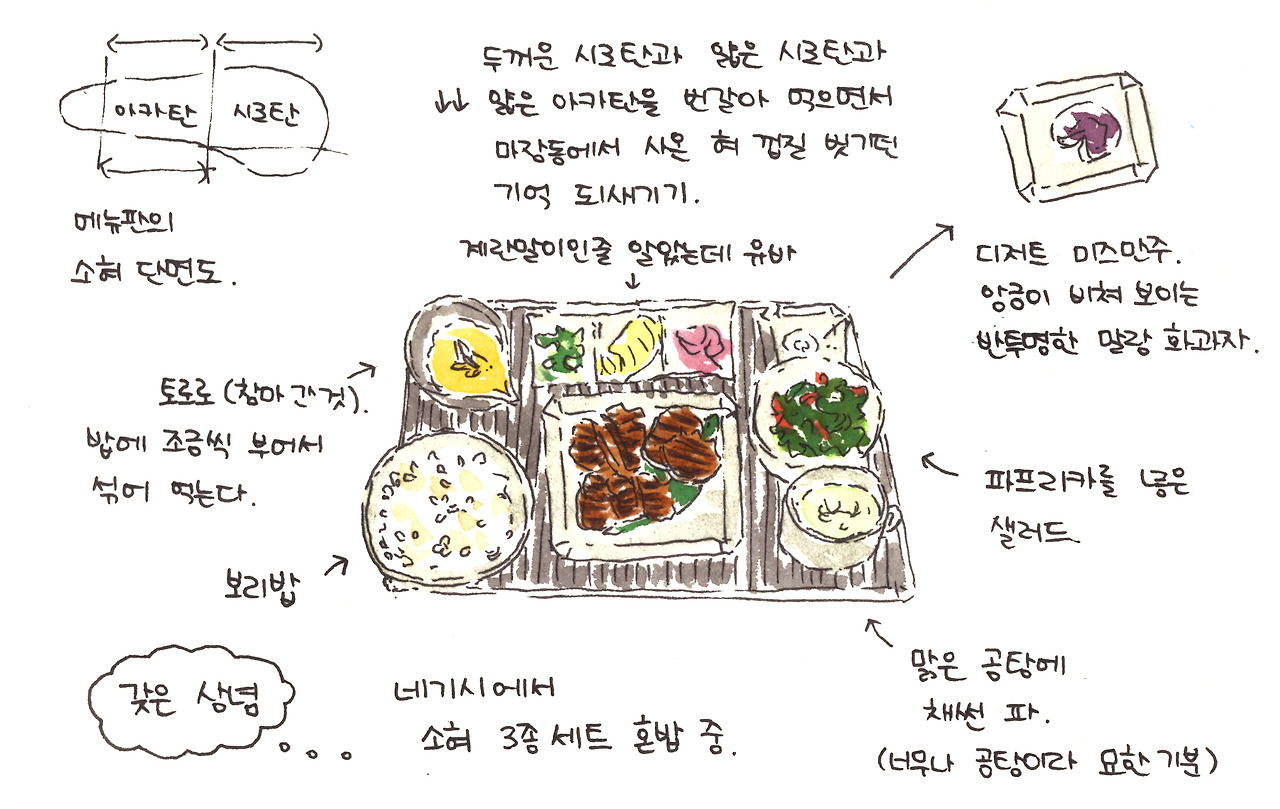 아카탄 시로탄
메뉴판의
소혀 단면도.
두꺼운 시로탄과 얇은 시로탄과
얇은 아카탄을 번갈아 먹으면서
마장동에서 사온 혀 껍질 벗기던
기억 되새기기.
계란말이인줄 알았는데 유바
디저트 미즈만주.
앙금이 비쳐 보이는
반투명한 말랑 화과자.
토로로(참마 간 것).
밥에 조금씩 부어서
섞어 먹는다.
보리밥
파프리카를 넣은
샐러드
맑은 곰탕에
채썬 파.
(너무나 곰탕이라 묘한 기분)
갖은 상념
네기시에서
소혀 3종 세트 혼밥 중.